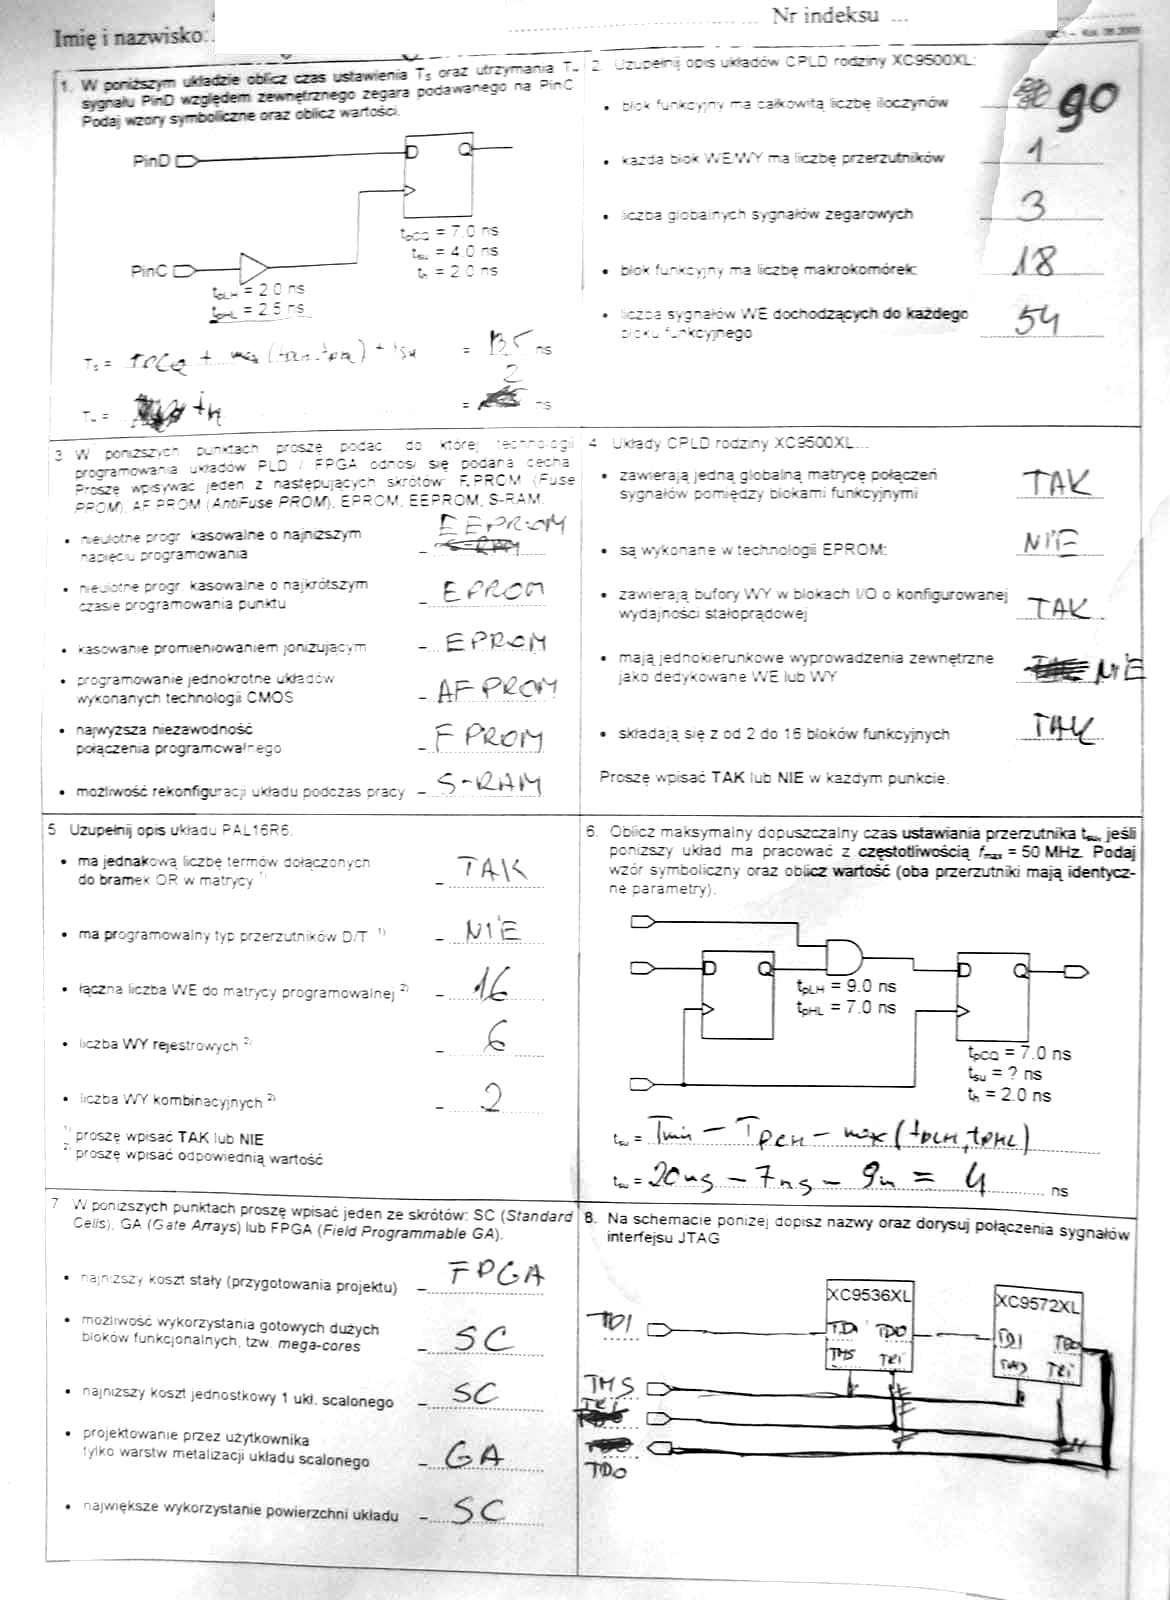 Imię i nazwisko:
Nr indeksu ...
1. W poniższym układzie oblicz czas ustawienia Ts oraz utrzymania TH
sygnału PinD względem zewnętrznego zegara podawanego na PinC
Podaj wzory symboliczne oraz oblicz wartości.
PinD
D Q
tpCQ = 7.0 ns
tsu = 4.0 ns
th = 2.0 ns
PinC
tpLH = 2.0 ns
tpHL = 2.5 ns
Ts = TPCQ + max (tpLH, tpHL) + tsu = 13.5 ns
2
TH = th = ns
2. Uzupełnij opis układów CPLD rodziny XC9500XL:
• blok funkcyjny ma całkowitą liczbę iloczynów 90
• każda blok WE/WY ma liczbę przerzutników 1
• liczba globalnych sygnałów zegarowych 3
• blok funkcyjny ma liczbę makrokomórek: 18
• liczba sygnałów WE dochodzących do każdego
bloku funkcyjnego 54
3 W poniższych punktach proszę podać do której technologii
programowania układów PLD / FPGA odnosi się podana cecha
Proszę wpisywać jeden z następujących skrótów: F.PROM (Fuse
PROM), AF PROM (AntiFuse PROM), EPROM, EEPROM, S-RAM.
• nieulotne progr kasowalne o najniższym
napięciu programowania – EEPROM
• nieulotne progr. kasowalne o najkrótszym
czasie programowania punktu – EPROM
• kasowanie promieniowaniem jonizującym – EPROM
• programowanie jednokrotne układów
wykonanych technologii CMOS – AF PROM
• najwyższa niezawodność
połączenia programowalnego – F PROM
• możliwość rekonfiguracji układu podczas pracy – S-RAM
4 Układy CPLD rodziny XC9500XL...
• zawierają jedną globalną matrycę połączeń
sygnałów pomiędzy blokami funkcyjnymi TAK
• są wykonane w technologii EPROM: NIE
• zawierają bufory WY w blokach I/O o konfigurowanej
wydajności stałoprądowej TAK
• mają jednokierunkowe wyprowadzenia zewnętrzne
jako dedykowane WE lub WY NIE
• składają się z od 2 do 16 bloków funkcyjnych TAK
Proszę wpisać TAK lub NIE w każdym punkcie.
5. Uzupełnij opis układu PAL16R6.
• ma jednakową liczbę termów dołączonych
do bramek OR w matrycy 1) – TAK
• ma programowalny typ przerzutników D/T 1) – NIE
• łączna liczba WE do matrycy programowalnej 2) – 16
• liczba WY rejestrowych 2) – 6
• liczba WY kombinacyjnych 2) – 2
1) proszę wpisać TAK lub NIE
2) proszę wpisać odpowiednią wartość
6. Oblicz maksymalny dopuszczalny czas ustawiania przerzutnika tsu, jeśli
poniższy układ ma pracować z częstotliwością fmax = 50 MHz. Podaj
wzór symboliczny oraz oblicz wartość (oba przerzutniki mają identycz-
ne parametry).
D Q
tpLH = 9.0 ns
tpHL = 7.0 ns
D Q
tpCQ = 7.0 ns
tsu = ? ns
th = 2.0 ns
tsu = Tmin – TpCH – max (tpLH, tpHL)
tsu = 20ns – 7ns – 9n = 4 ns
7 W poniższych punktach proszę wpisać jeden ze skrótów: SC (Standard
Cells), GA (Gate Arrays) lub FPGA (Field Programmable GA).
• najniższy koszt stały (przygotowania projektu) – FPGA
• możliwość wykorzystania gotowych dużych
bloków funkcjonalnych, tzw. mega-cores – SC
• najniższy koszt jednostkowy 1 ukł. scalonego – SC
• projektowanie przez użytkownika
tylko warstw metalizacji układu scalonego – GA
• największe wykorzystanie powierzchni układu – SC
8. Na schemacie poniżej dopisz nazwy oraz dorysuj połączenia sygnałów
interfejsu JTAG
XC9536XL
XC9572XL
TDI
TDI TDO
TDI TDO
TMS
TMS
TMS
TDO